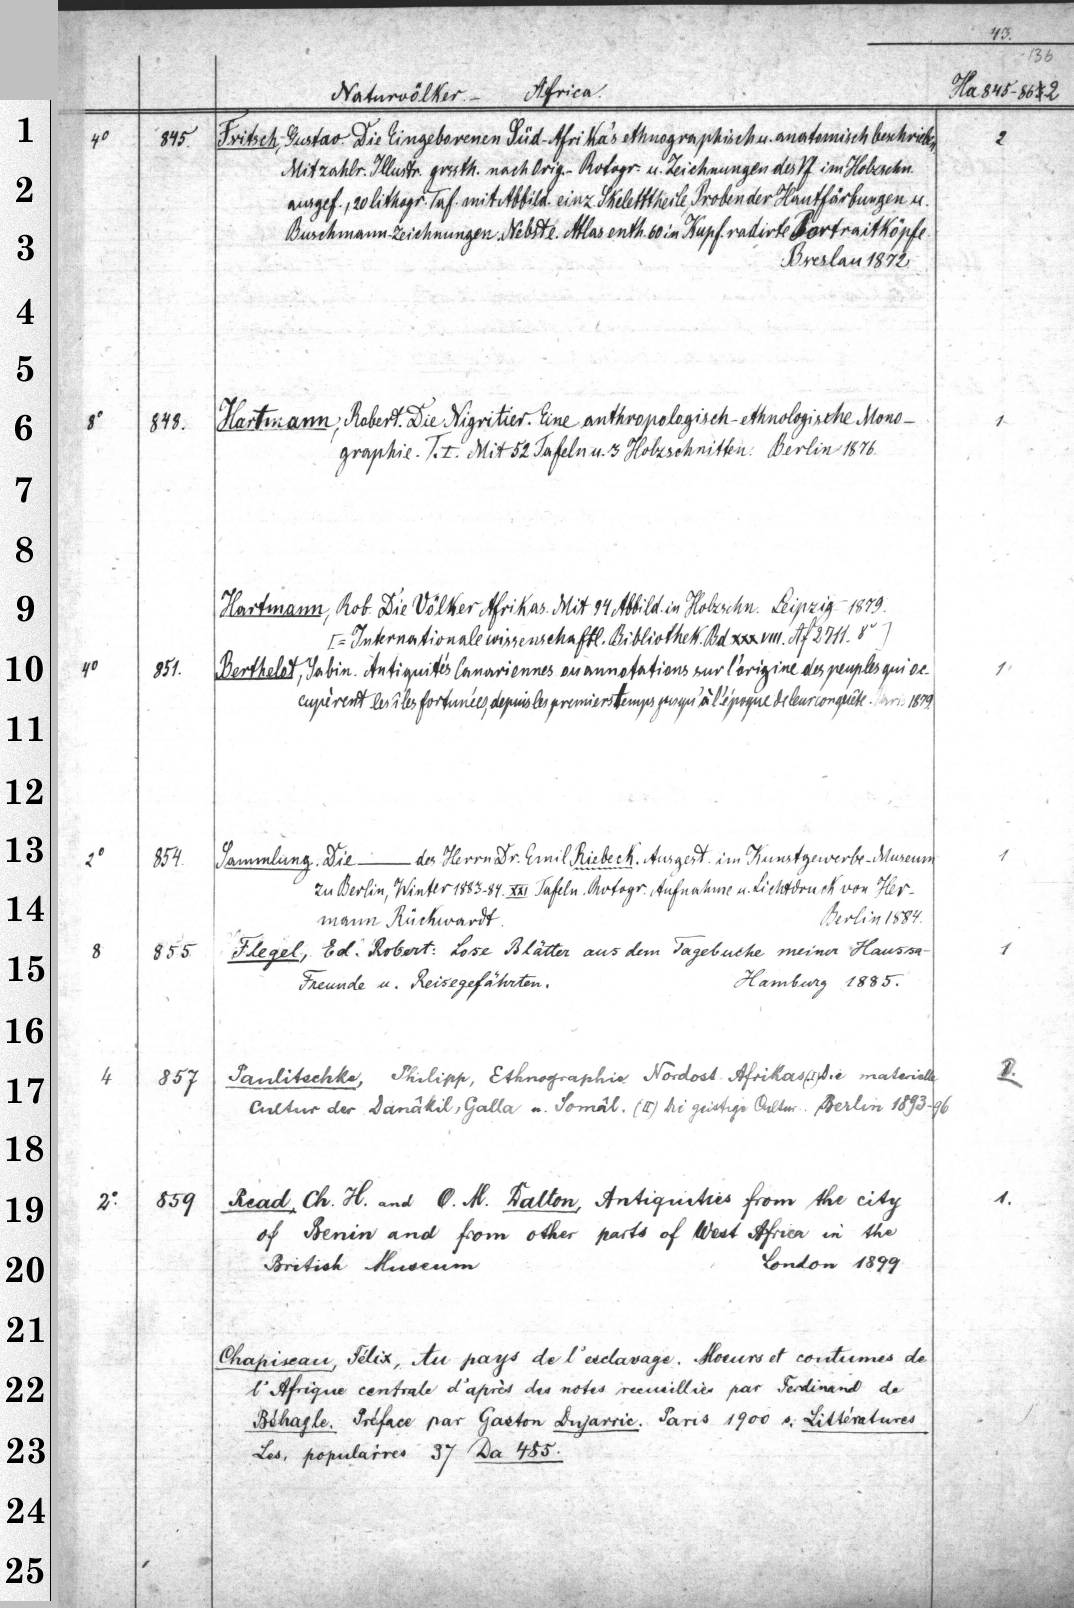 43.
136
Naturvölker. – Africa. Ha 845–867.2
1 4° 845. Fritsch, Gustav. Die Eingeborenen Süd-Afrika's ethnographisch u. anatomisch beschrieben.
2
Mit zahlr. Illustr. grssth. nach Orig.- Photogr. u. Zeichnungen des Vf. im Holzschn.
2 ausgef., 20 lithogr. Taf. mit Abbild. einz. Skeletttheile, Proben der Hautfärbungen u.
3 Buschmann-Zeichnungen. Nebst e. Atlas enth. 60 in Kupf. radirte Portraitköpfe.
Breslau 1872
4
5
6 8° 848. Hartmann, Robert. Die Nigritier. Eine anthropologisch-ethnologische Mono- 1
graphie. T. I. Mit 52 Tafeln u. 3 Holzschnitten. Berlin 1876.
7
8
9 Hartmann, Rob. Die Völker Afrikas. Mit 94 Abbild. in Holzschn. Leipzig 1879.
[= Internationale wissenschaftl. Bibliothek. Bd XXXVIII. Af 2711. 8°]
10 4° 851. Berthelot, Sabin. Antiquités Canariennes ou annotations sur l'origine des peuples qui oc- 1
cupèrent les îles fortunées, depuis les premiers temps jusqu'à l'époque de leur conquête. Paris 1879.
11
12
13 2° 854. Sammlung. Die —— des Herrn Dr. Emil Riebeck. Ausgest. im Kunstgewerbe-Museum 1
zu Berlin, Winter 1883-84. XXI Tafeln. Photogr. Aufnahme u. Lichtdruck von Her-
14 mann Rückwardt. Berlin 1884.
15 8 855 Flegel, Ed. Robert: Lose Blätter aus dem Tagebuche meiner Haussa- 1
Freunde u. Reisegefährten. Hamburg 1885.
16
17 4 857 Paulitschke, Philipp, Ethnographie Nordost-Afrikas (I) Die materielle 2.
Cultur der Danâkil, Galla u. Somâl. (II) Die geistige Cultur. Berlin 1893-96
18
19 2° 859 Read, Ch. H. and O. M. Dalton, Antiquities from the city 1.
of Benin and from other parts of West Africa in the
20 British Museum London 1899
21
Chapiseau, Félix, Au pays de l'esclavage. Moeurs et coutumes de
22 l'Afrique centrale d'après des notes recueillies par Ferdinand de
Béhagle. Préface par Gaston Dujarric. Paris 1900 s. Littératures
23 Les, populaires 37 Da 485.
24
25